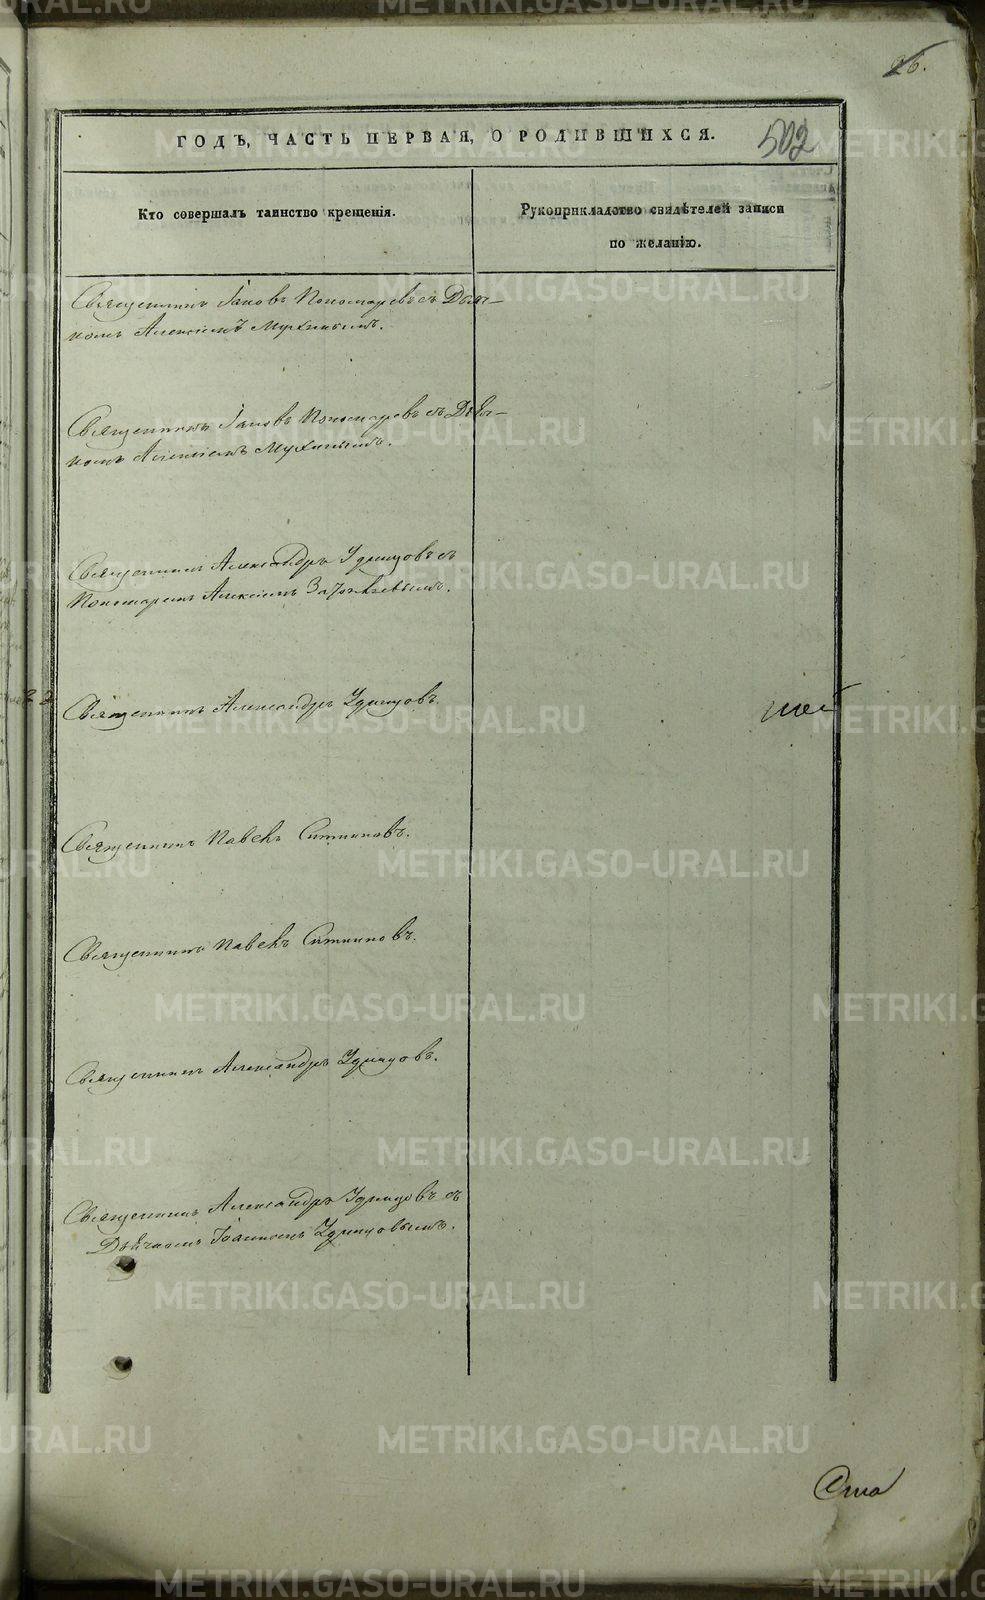 26.
ГОДЪ, ЧАСТЬ ПЕРВАЯ, О РОДИВШИХСЯ.
502
Кто совершалъ таинство крещенія.
Рукоприкладство свидѣтелей записи
по желанію.
Священникъ Іаковъ Пономаревъ съ Дьяч-
комъ Алексіемъ Мухинымъ.
Священникъ Іаковъ Пономаревъ съ Дьяч-
комъ Алексіемъ Мухинымъ.
Священникъ Александръ Удинцовъ съ
Пономаремъ Алексіемъ
Священникъ Александръ Удинцовъ.
Священникъ Павелъ Ситниковъ.
Священникъ Павелъ Ситниковъ.
Священникъ Александръ Удинцовъ.
Священникъ Александръ Удинцовъ съ
Дьячкомъ Іоанномъ Удинцовымъ.
METRIKI.GASO-URAL.RU